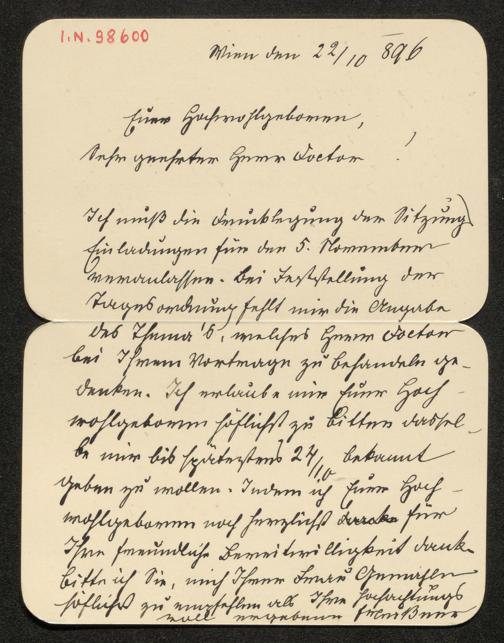 I.N. 98600
Wien den 22/10 896
Euer Hochwohlgeboren,
Sehr geehrter Herr Doctor !
Ich muß die Drucklegung der Sitzungs
Einladungen für den 5. November
veranlassen. Bei Feststellung der
Tagesordnung fehlt mir die Angabe
des Thema's, welches Herr Doctor
bei Ihrem Vortrage zu behandeln ge-
denken. Ich erlaube mir Euer Hoch-
wohlgeboren höflichst zu bitten dassel-
be mir bis spätestens 24/10 bekannt
geben zu wollen. Indem ich Euer Hoch-
wohlgeboren noch herzlichst danke für
Ihre freundliche Bereitwilligkeit danke
bitte ich Sie, mich Ihrer Frau Gemahlin
höflichst zu empfehlen als Ihr hochachtungs
voll ergebener